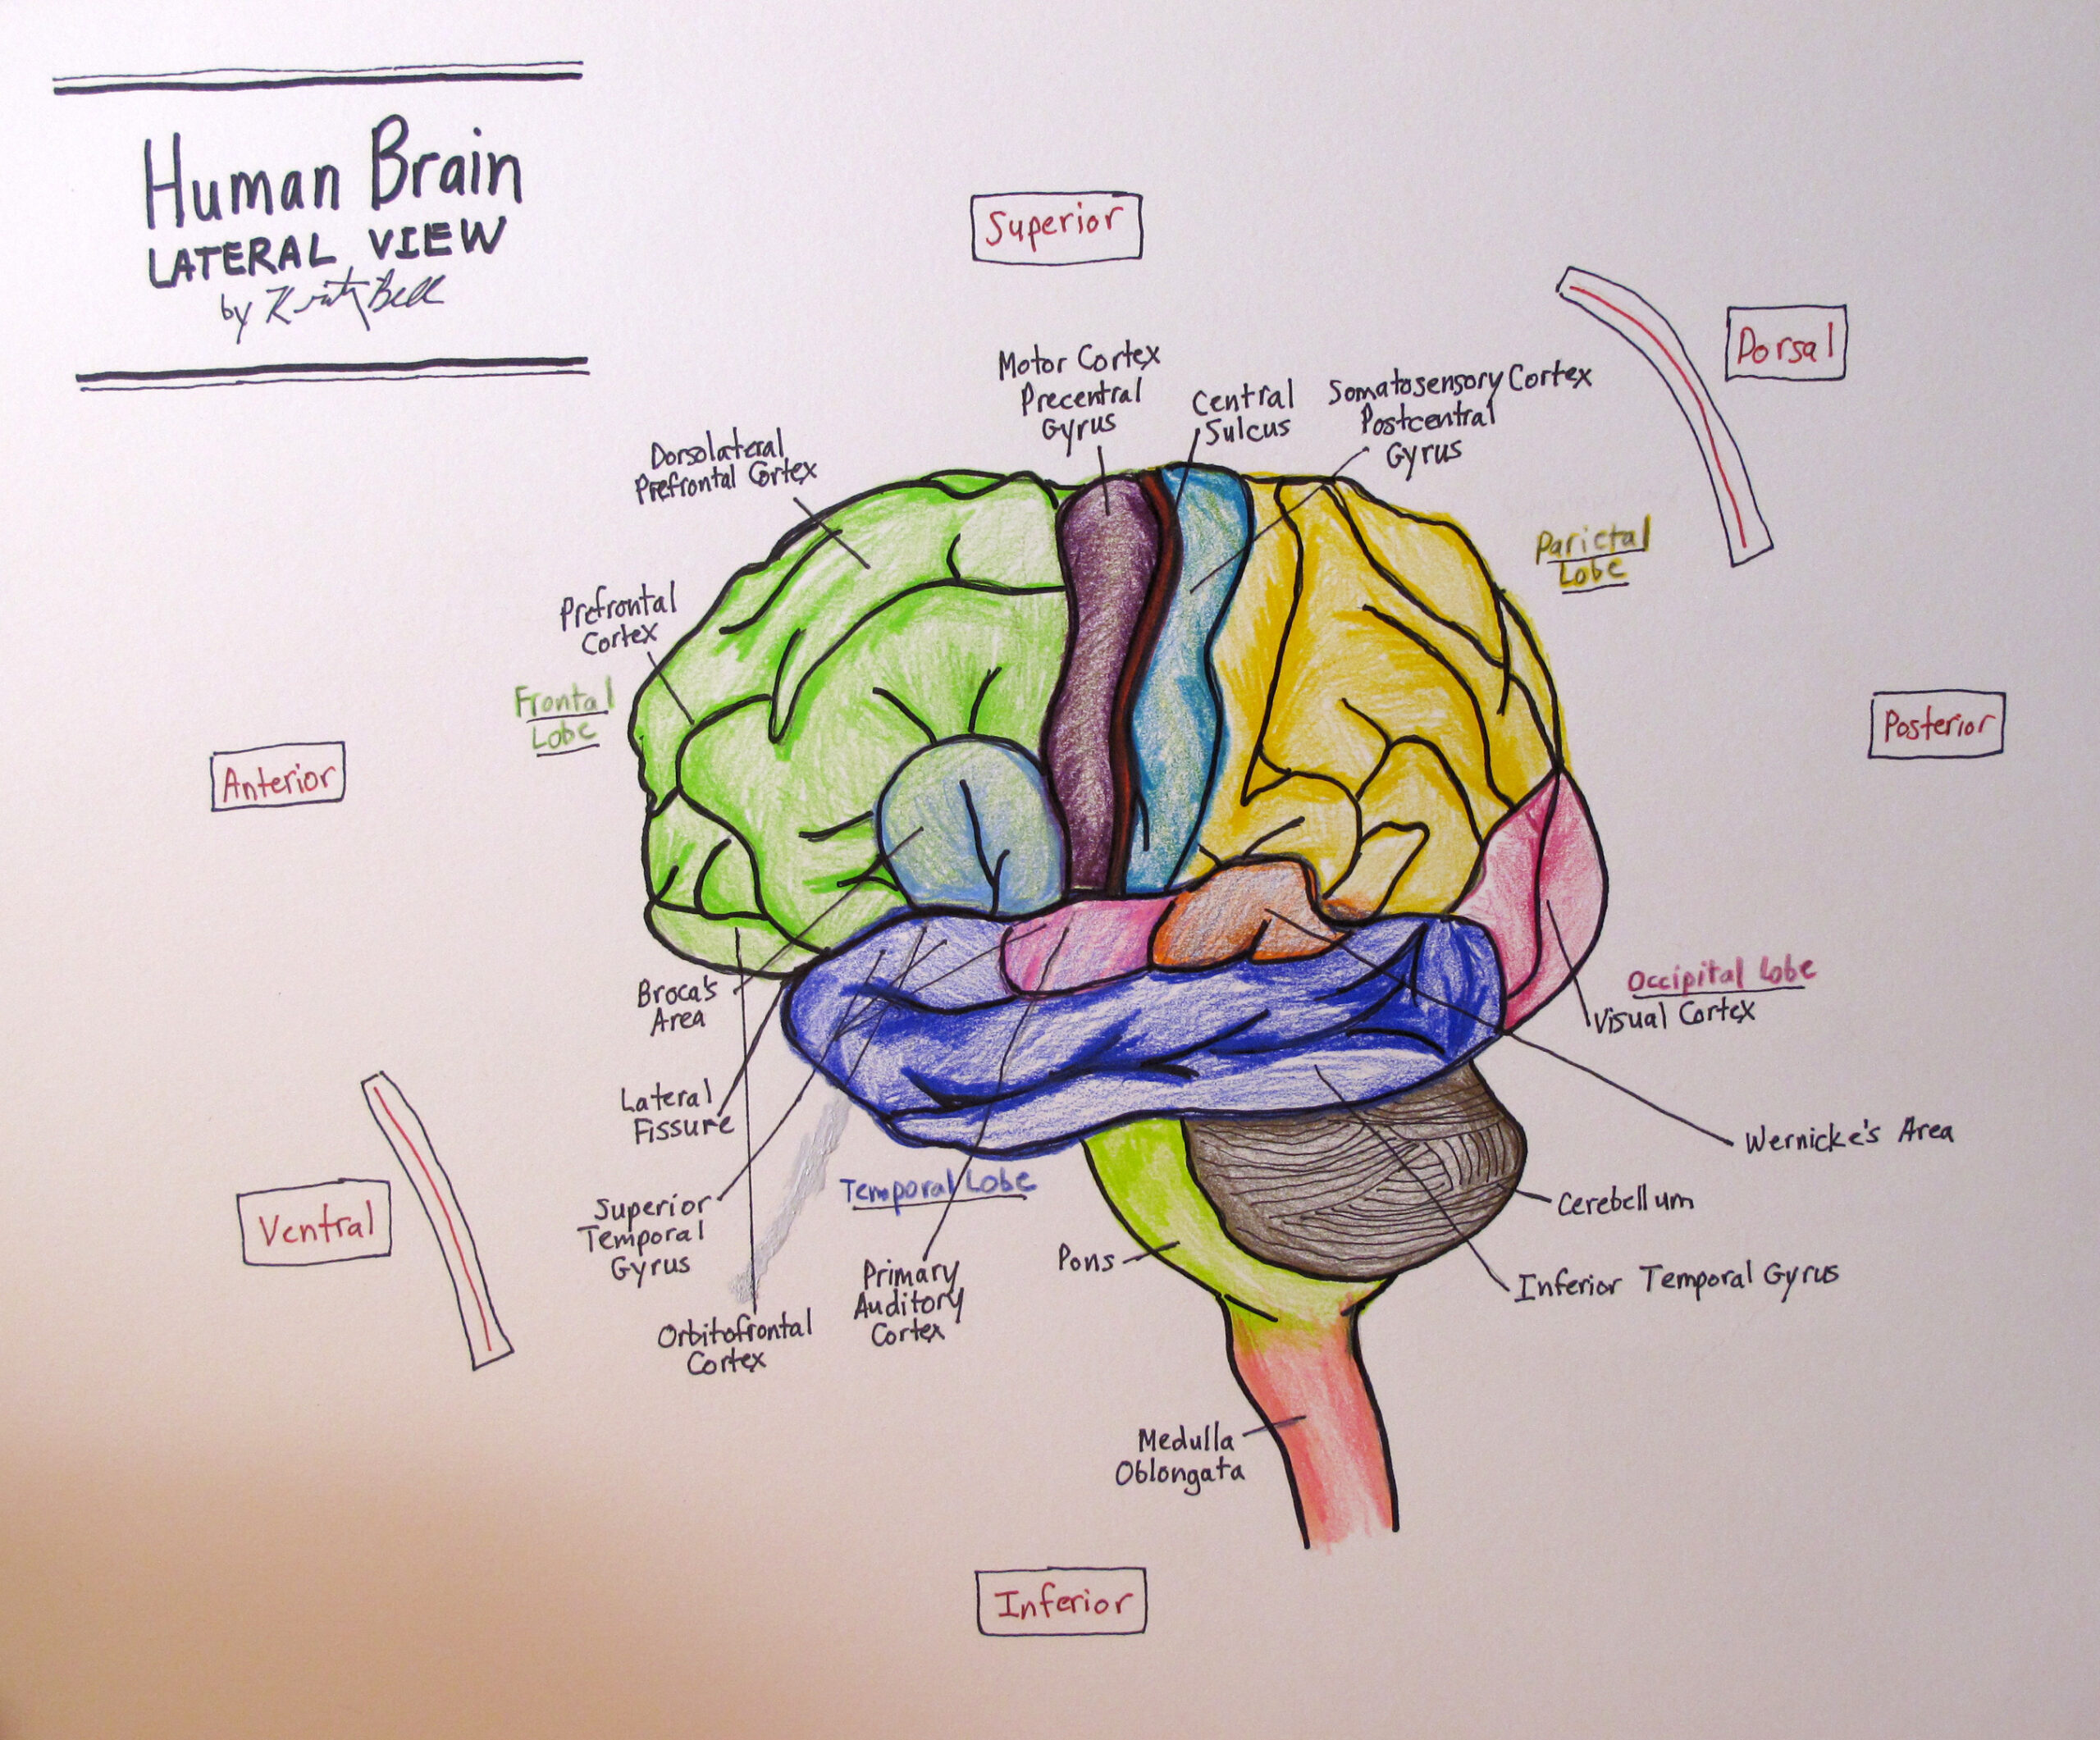 Human Brain
LATERAL VIEW
by Kristy Bell
Superior
Dorsal
Motor Cortex
Precentral
Gyrus
Central
Sulcus
Somatosensory Cortex
Postcentral
Gyrus
Dorsolateral
Prefrontal Cortex
Parietal
Lobe
Prefrontal
Cortex
Frontal
Lobe
Anterior
Posterior
Broca's
Area
Occipital Lobe
Visual Cortex
Lateral
Fissure
Wernicke's Area
Ventral
Superior
Temporal
Gyrus
Temporal Lobe
Cerebellum
Pons
Primary
Auditory
Cortex
Inferior Temporal Gyrus
Orbitofrontal
Cortex
Medulla
Oblongata
Inferior